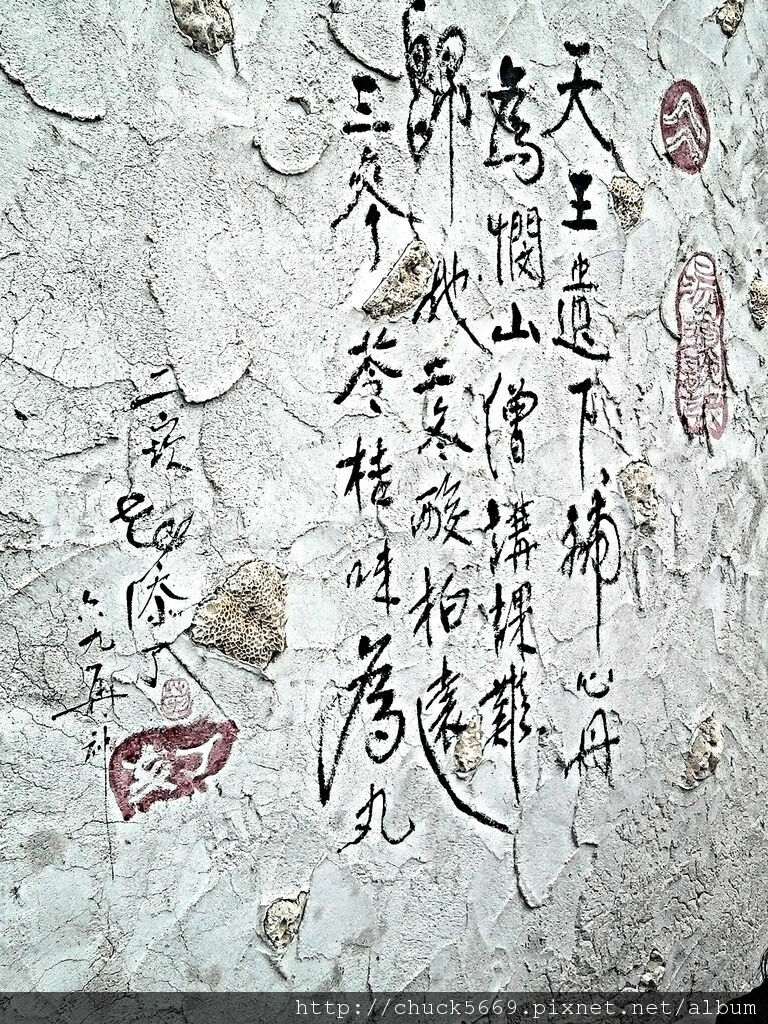 天王遺下補心丹
為憫山僧講課難
歸地二冬酸柏遠
三參苓桂味為丸
二崁
添了
六九
http://chuck5669.pixnet.net/album